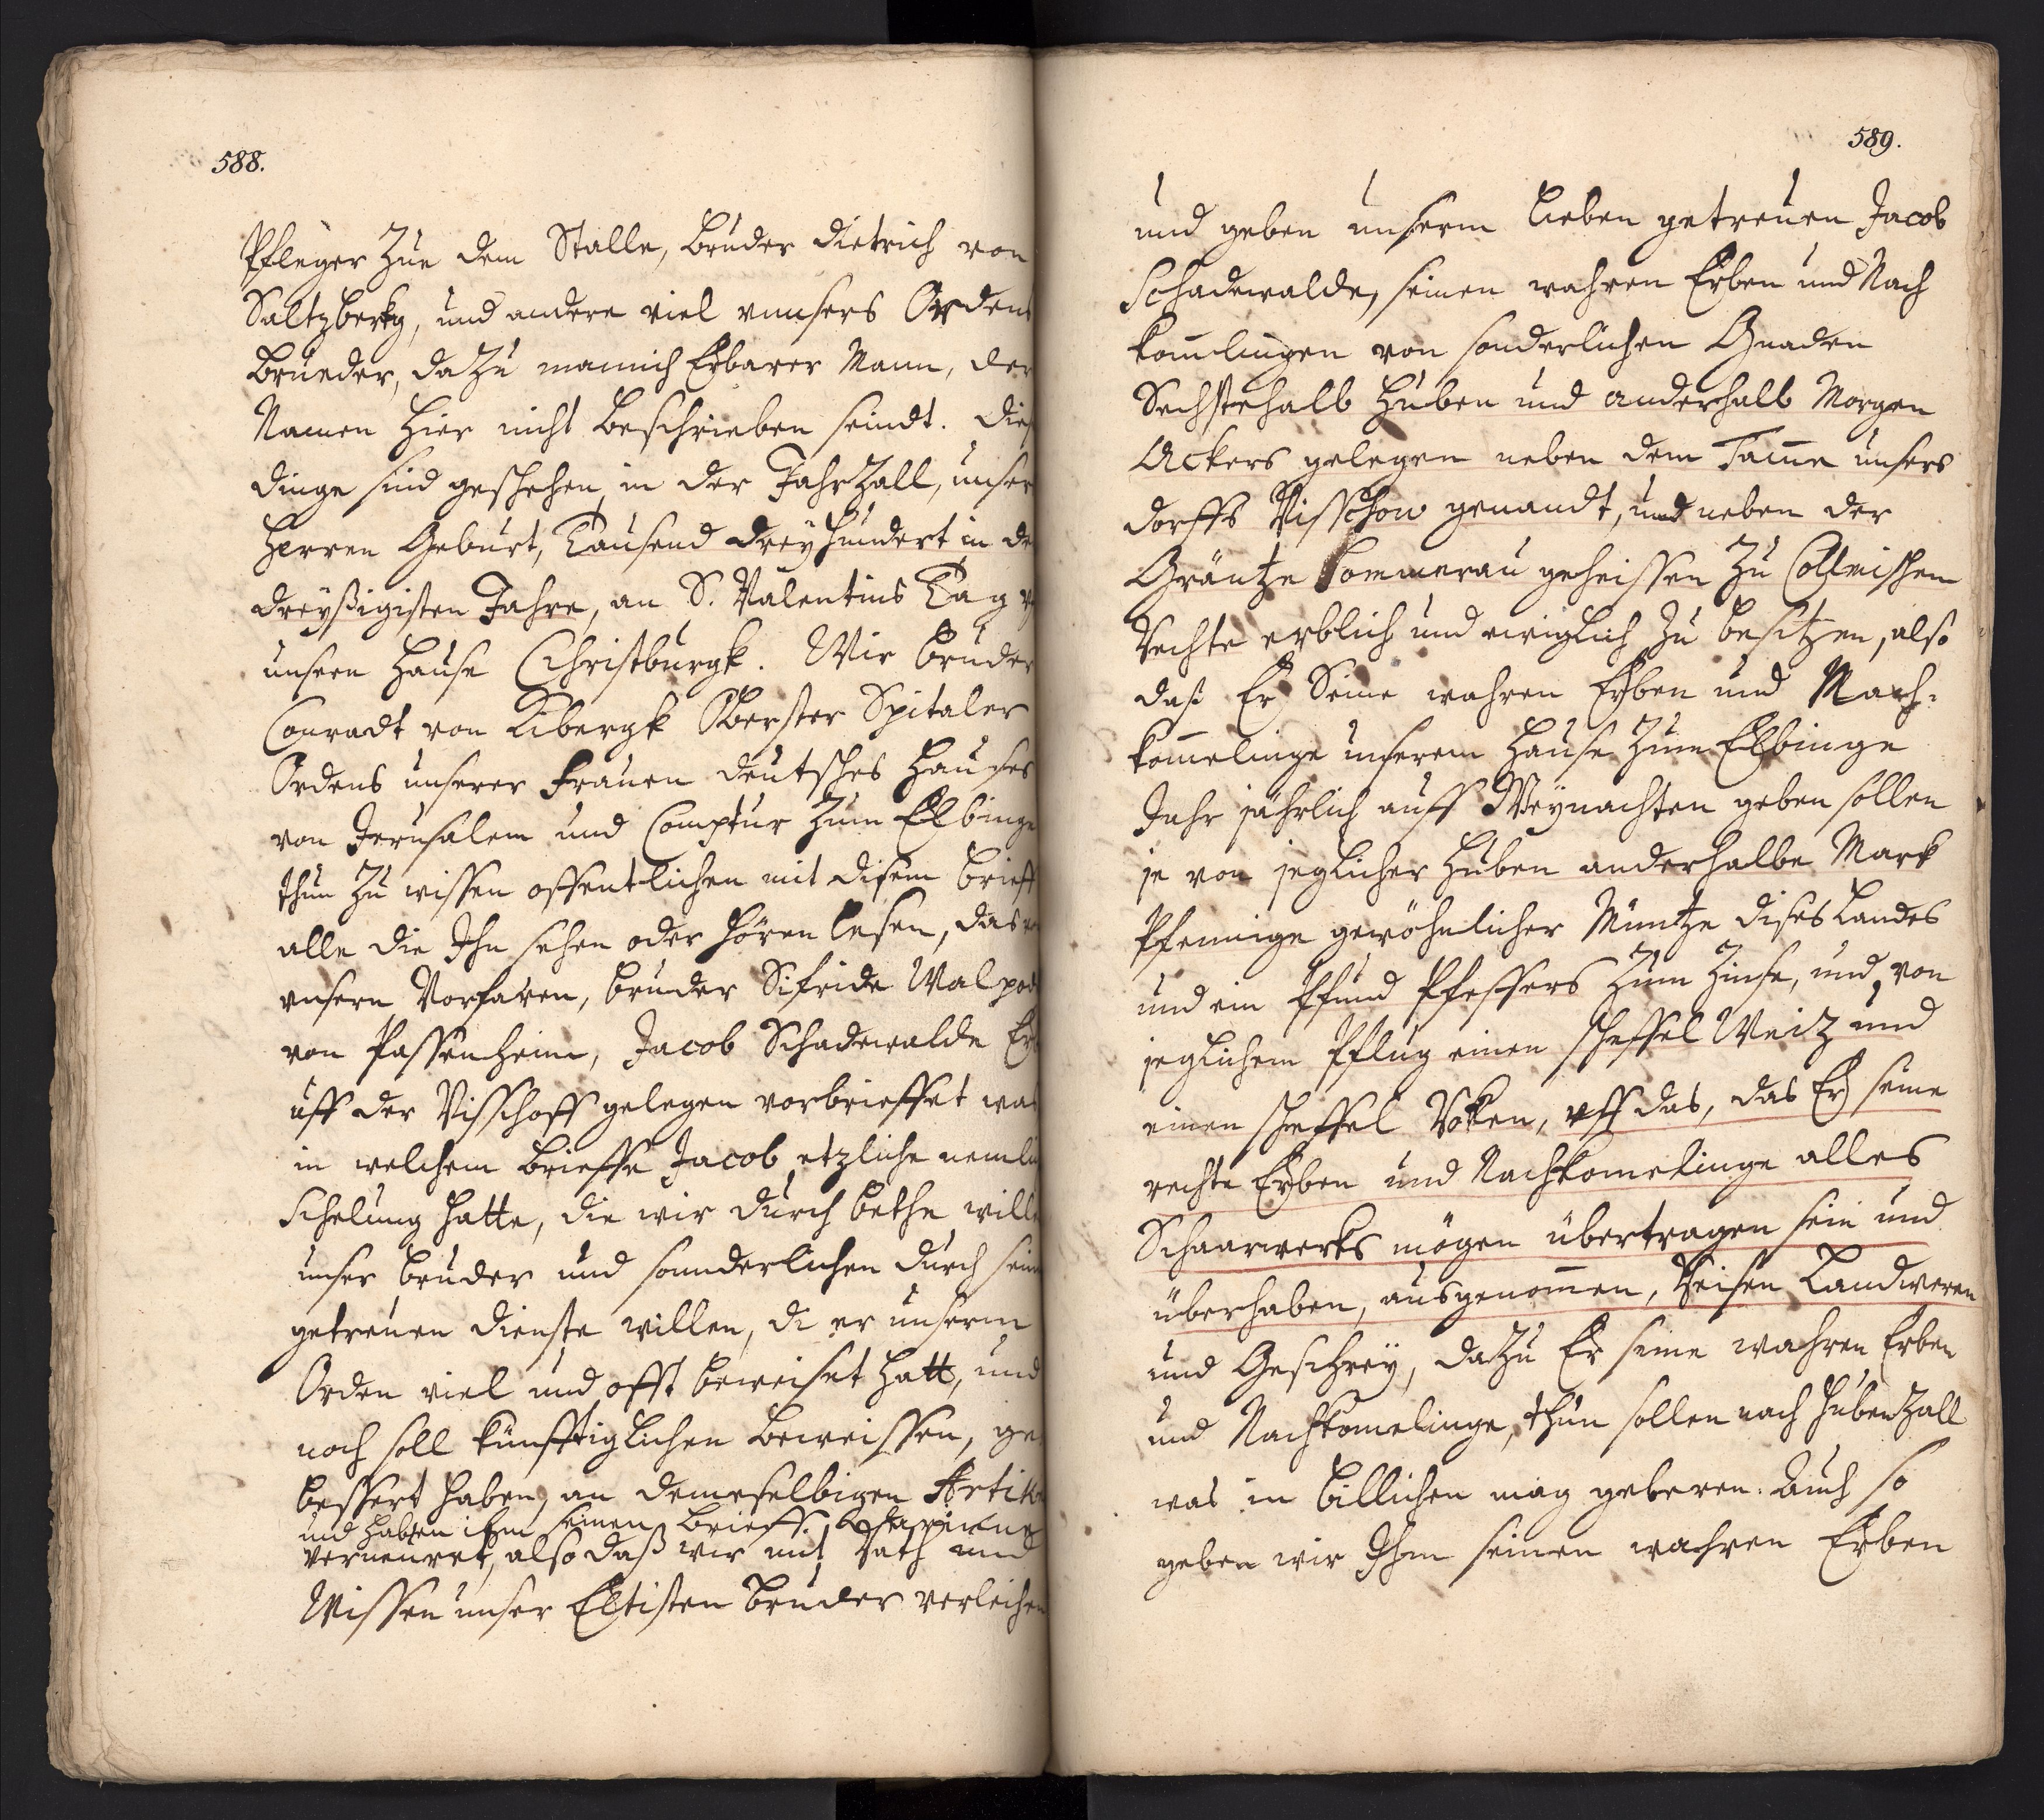 588.
Pfleger Zue dem Stalle, bruder Dietrich von
Saltzbergk, und andere viel unnsers Ordens
brueder, dazu mannich Erbarer Mann, der
Namen hier nicht beschrieben seindt. Dies
dinge sind geschehen in der Jahrzall, unser
herren Geburt, Tausend dreyhundert in de
dreyßigisten Jahre, an S. Valentins Tag
unsern Hause Christburgk. Wir bruder
Conradt von Kibergk Oberster Spitaler
Ordens unserer Frauen deutsches Hauses
von Jerusalem und Comptur zum Elbinge
thun zu wissen offentlichen mit disem brieff
alle die Ihn sehen oder hören lesen, das
unsern Vorfaren, bruder Sifride Walpod
von Passenheim, Jacob Schadewalde
uff der Visschoff gelegen vorbrieffet was
in welchem brieffe Jacob etzliche nemli
Schelung hatte, die wir durch bethe wille
unser bruder und sonnderlichen durch seine
getreuen dienste willen, di er unserm
Orden viel und offt beweiset hatt, und
noch soll künfftiglichen beweissen, ge
bessert haben, an demeselbigen Artik
und haben ihm seinen brieff
verneuret, also daß wir mit Rath und
Wissen unser Eltisten bruder verleihen
589.
und geben unserm lieben getreuen Jacob
Schadewalde, seinen wahren Erben und Nach
kom̄lingen von sonderlichen Gnaden
Sechstehalb Huben und anderhalb Morgen
Ackers gelegen neben dem Tam̄e unsers
dorffs Visschow genandt, und neben der
Gräntze Sommerau geheissen zu Colmischem
Rechte erblich und ewiglich zu besitzen, also
daß Er Seine wahren Erben und Nach-
kom̄elinge unserem Hause zum Elbinge
Jahr jährlich auff Weynachten geben sollen
je von jeglicher Huben anderhalbe Mark
Pfennige gewöhnlicher Müntze dises Landes
und ein Pfund Pfeffers zum Zinse, und von
jeglichem Pflug einen scheffel Weiz und
einen scheffel Roken, uff das, das Er seine
rechte Erben und Nachkomelinge alles
Schaarwerks mögen übertragen sein und
überhaben, ausgenom̄en, Reisen Landweren
und Geschrey, dazu Er seine wahren Erben
und Nachkomelinge, thun sollen nach Hubenzall
was in billichen mag geberen. Auch so
geben wir Ihm seinen wahren Erben